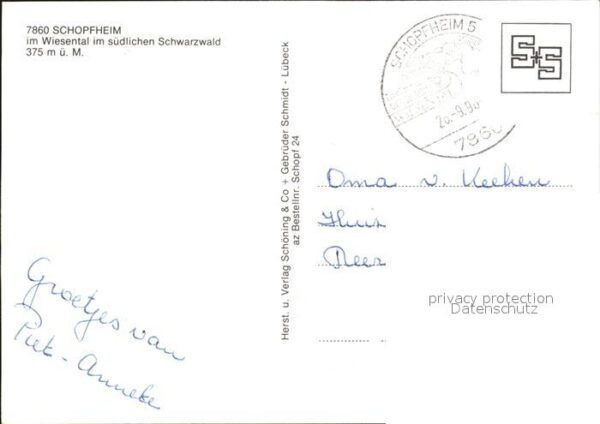 7860 SCHOPFHEIM
im Wiesental im südlichen Schwarzwald
375 m ü. M.
Groetjes van
Piet - Anneke
Herst. u. Verlag Schöning & Co + Gebrüder Schmidt - Lübeck
az Bestellnr. Schopf 24
SCHOPFHEIM 5
7860
S+S
Oma v. Keeken
Huis
privacy protection
Datenschutz